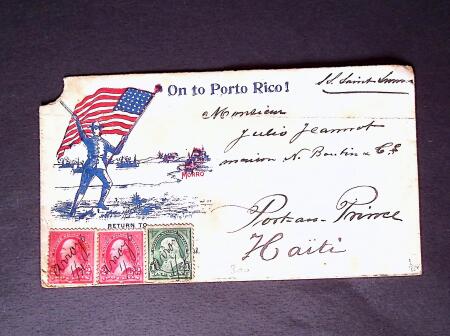 On to Porto Rico!
S.S. Saint Simon
Monsieur
Julio Jeannot
maison N. Boutin & Co
MORRO
RETURN TO
Port-au-Prince
Haïti